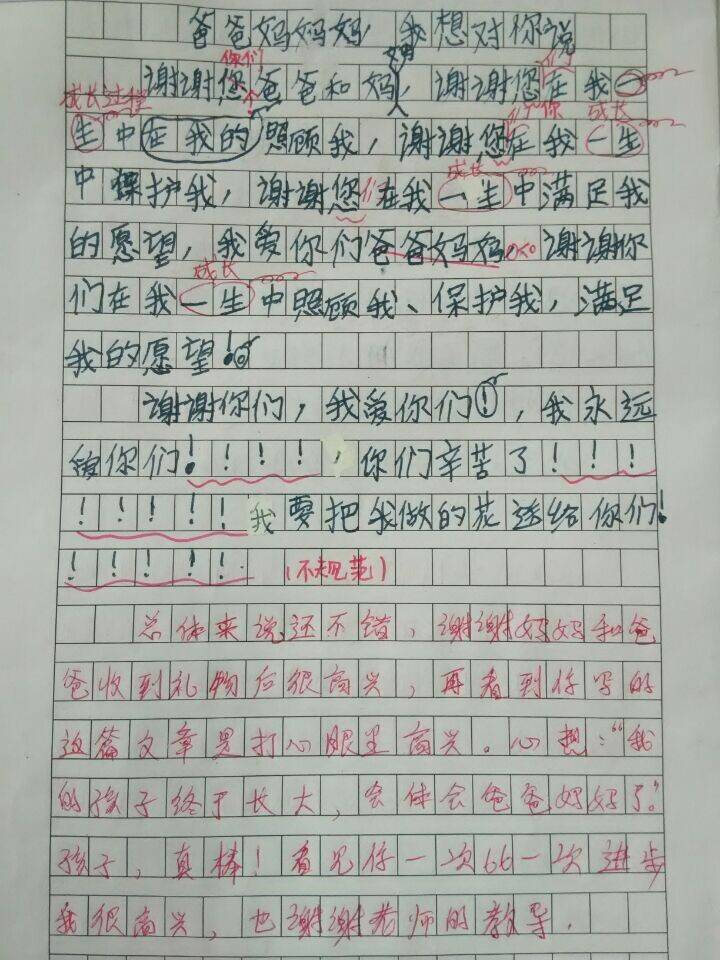 爸爸妈妈妈，我想对你说
你们
谢谢您爸爸和妈妈，谢谢您在我一
成长过程
生中在我的照顾我，谢谢您在我一生
们 成长
成长
中保护我，谢谢您们在我一生中满足我
的愿望，我爱你们爸爸妈妈，谢谢你
成长
们在我一生中照顾我、保护我，满足
我的愿望！
谢谢你们，我爱你们！，我永远
爱你们！！！！，你们辛苦了！！！
！！！！！我要把我做的花送给你们！
！！！！！（不规范）
总体来说还不错，谢谢妈妈和爸
爸收到礼物后很高兴，再看到你写的
这篇文章是打心眼里高兴。心想：“我
的孩子终于长大，会体会爸爸妈妈了。”
孩子，真棒！看见你一次比一次进步
我很高兴，也谢谢老师的教导.